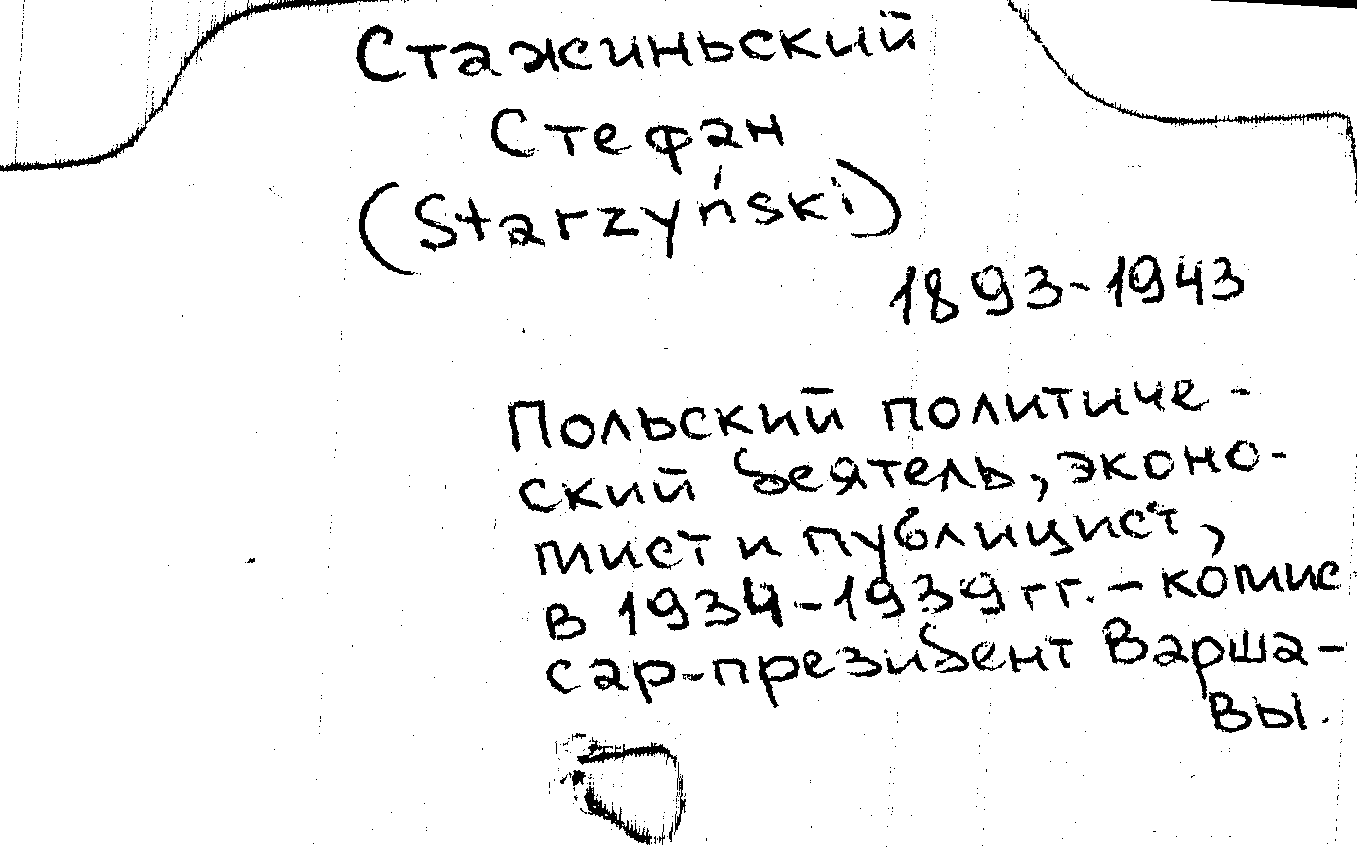 Стажиньский
Стефан
(Starzyński)
1893-1943
Польский политиче-
ский деятель, эконо-
мист и публицист,
в 1934-1939 гг. - комис
сар-президент Варша-
вы.